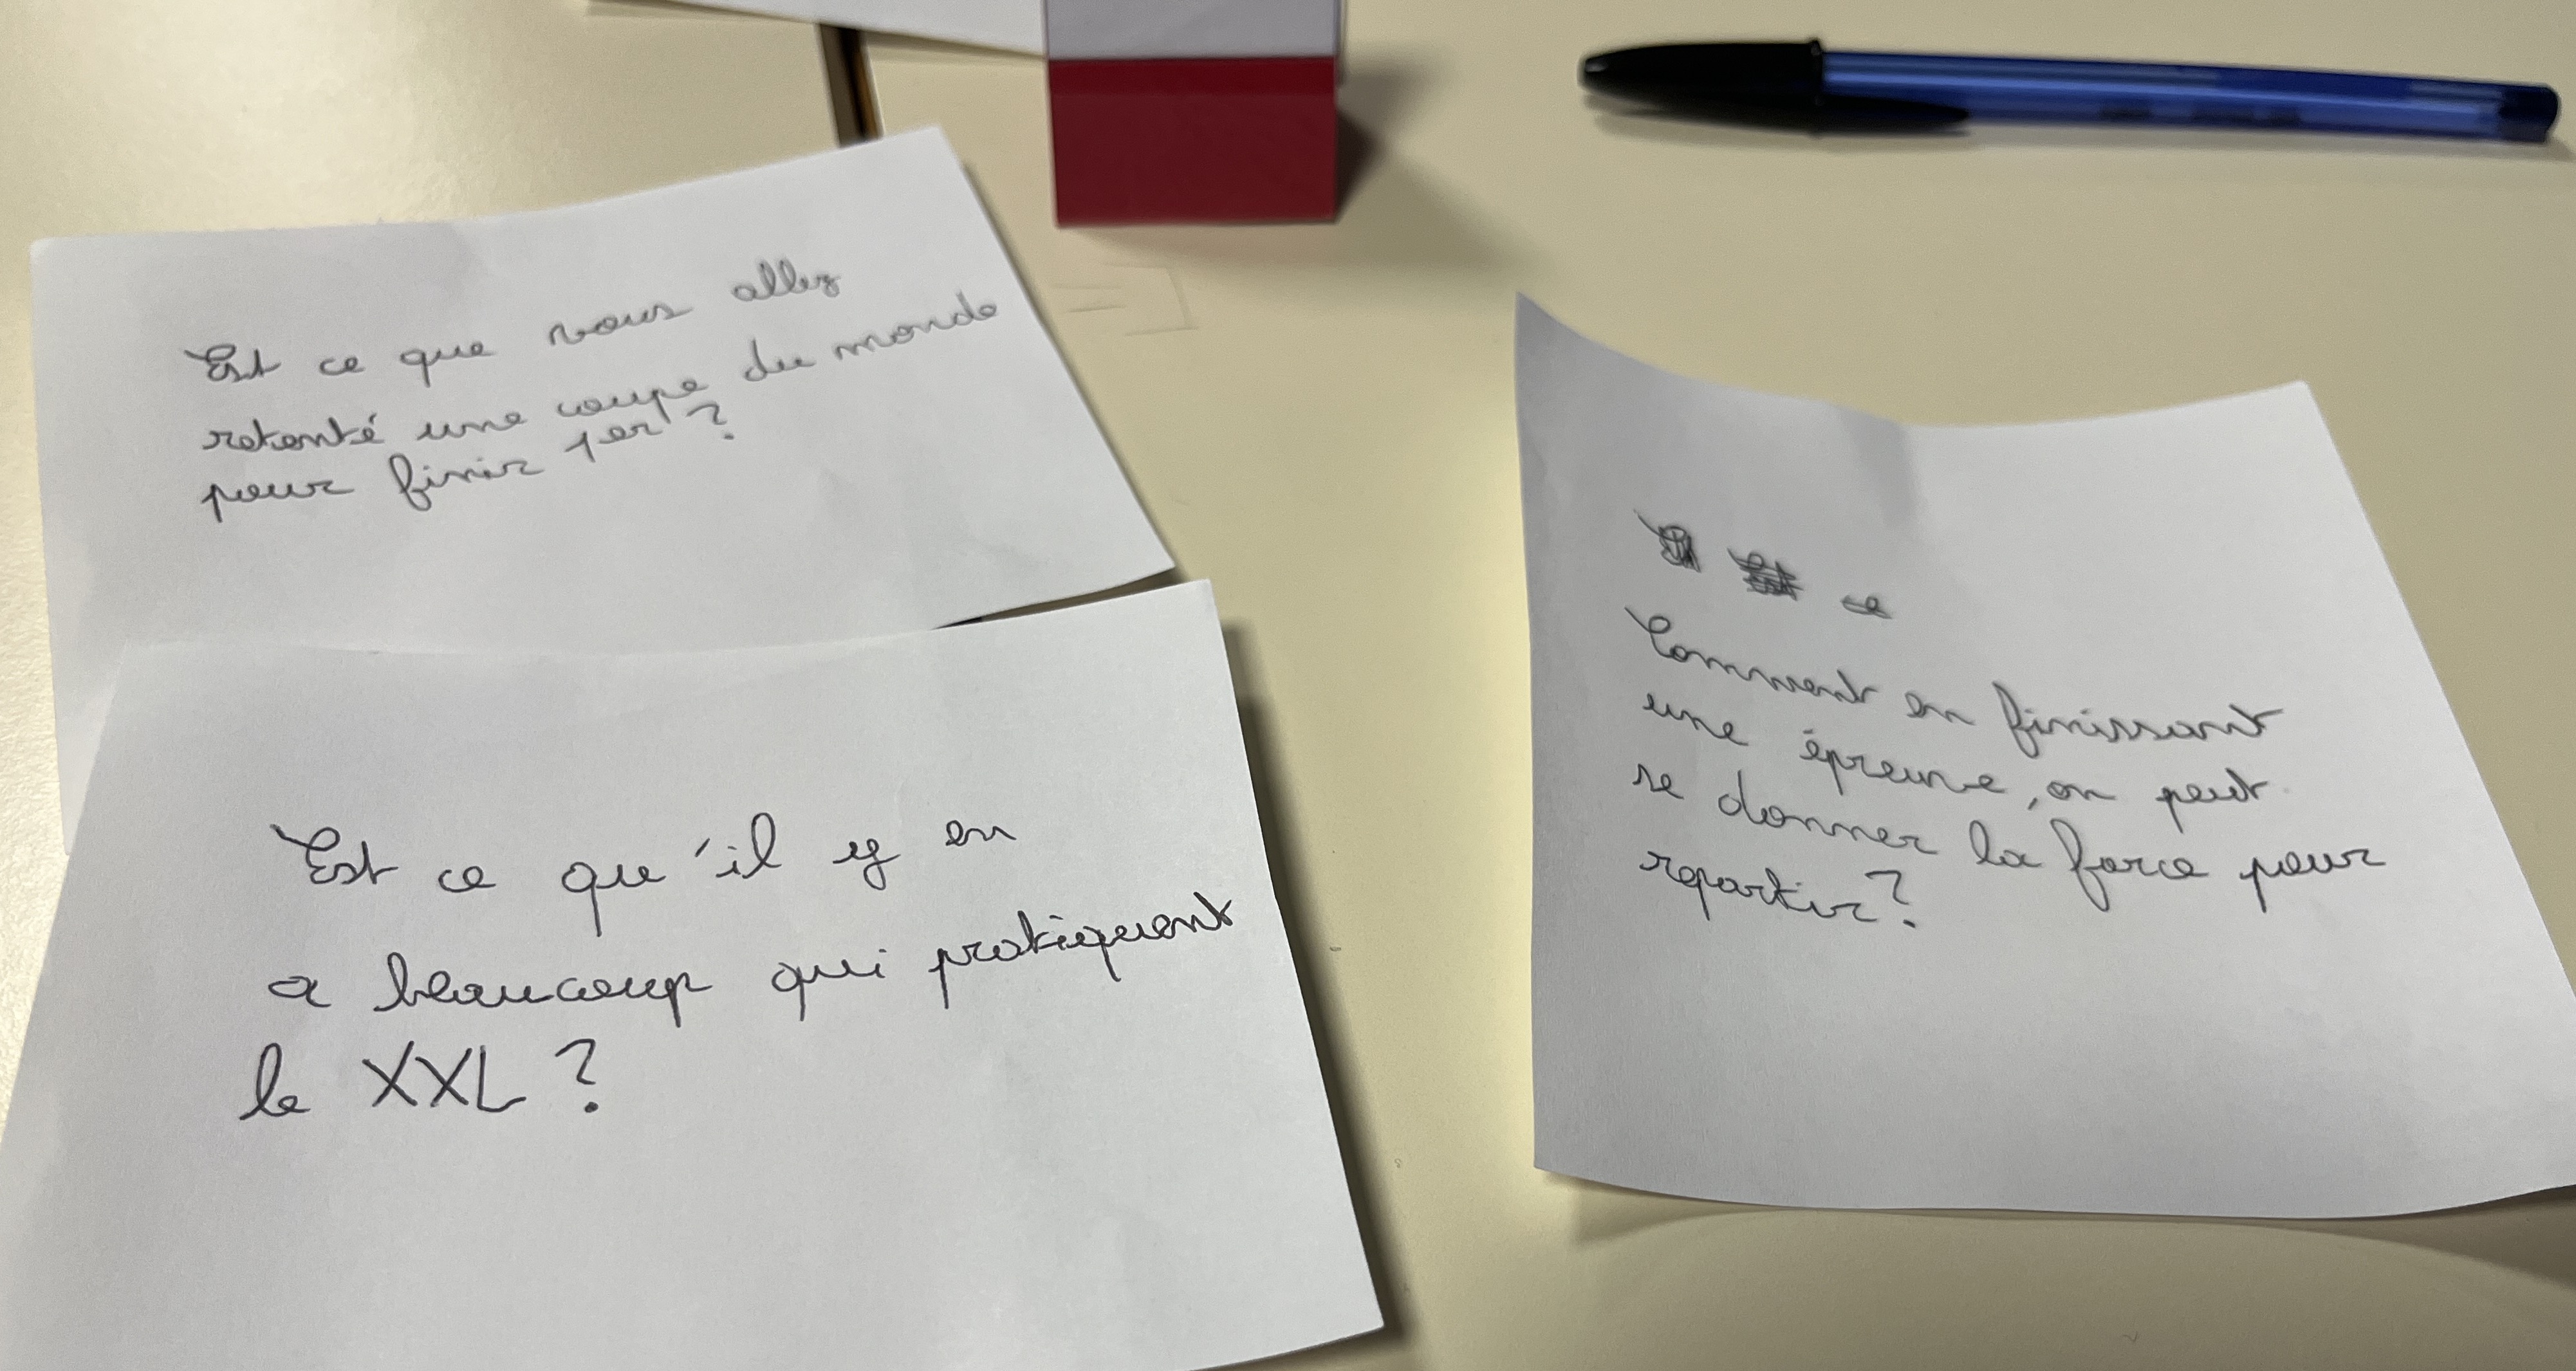 Est ce que vous allez
retenté une coupe du monde
pour finir 1er ?
Est ce qu'il y en
a beaucoup qui pratiquent
le XXL ?
ce
Comment en finissant
une épreuve, on peut
se donner la force pour
repartir ?